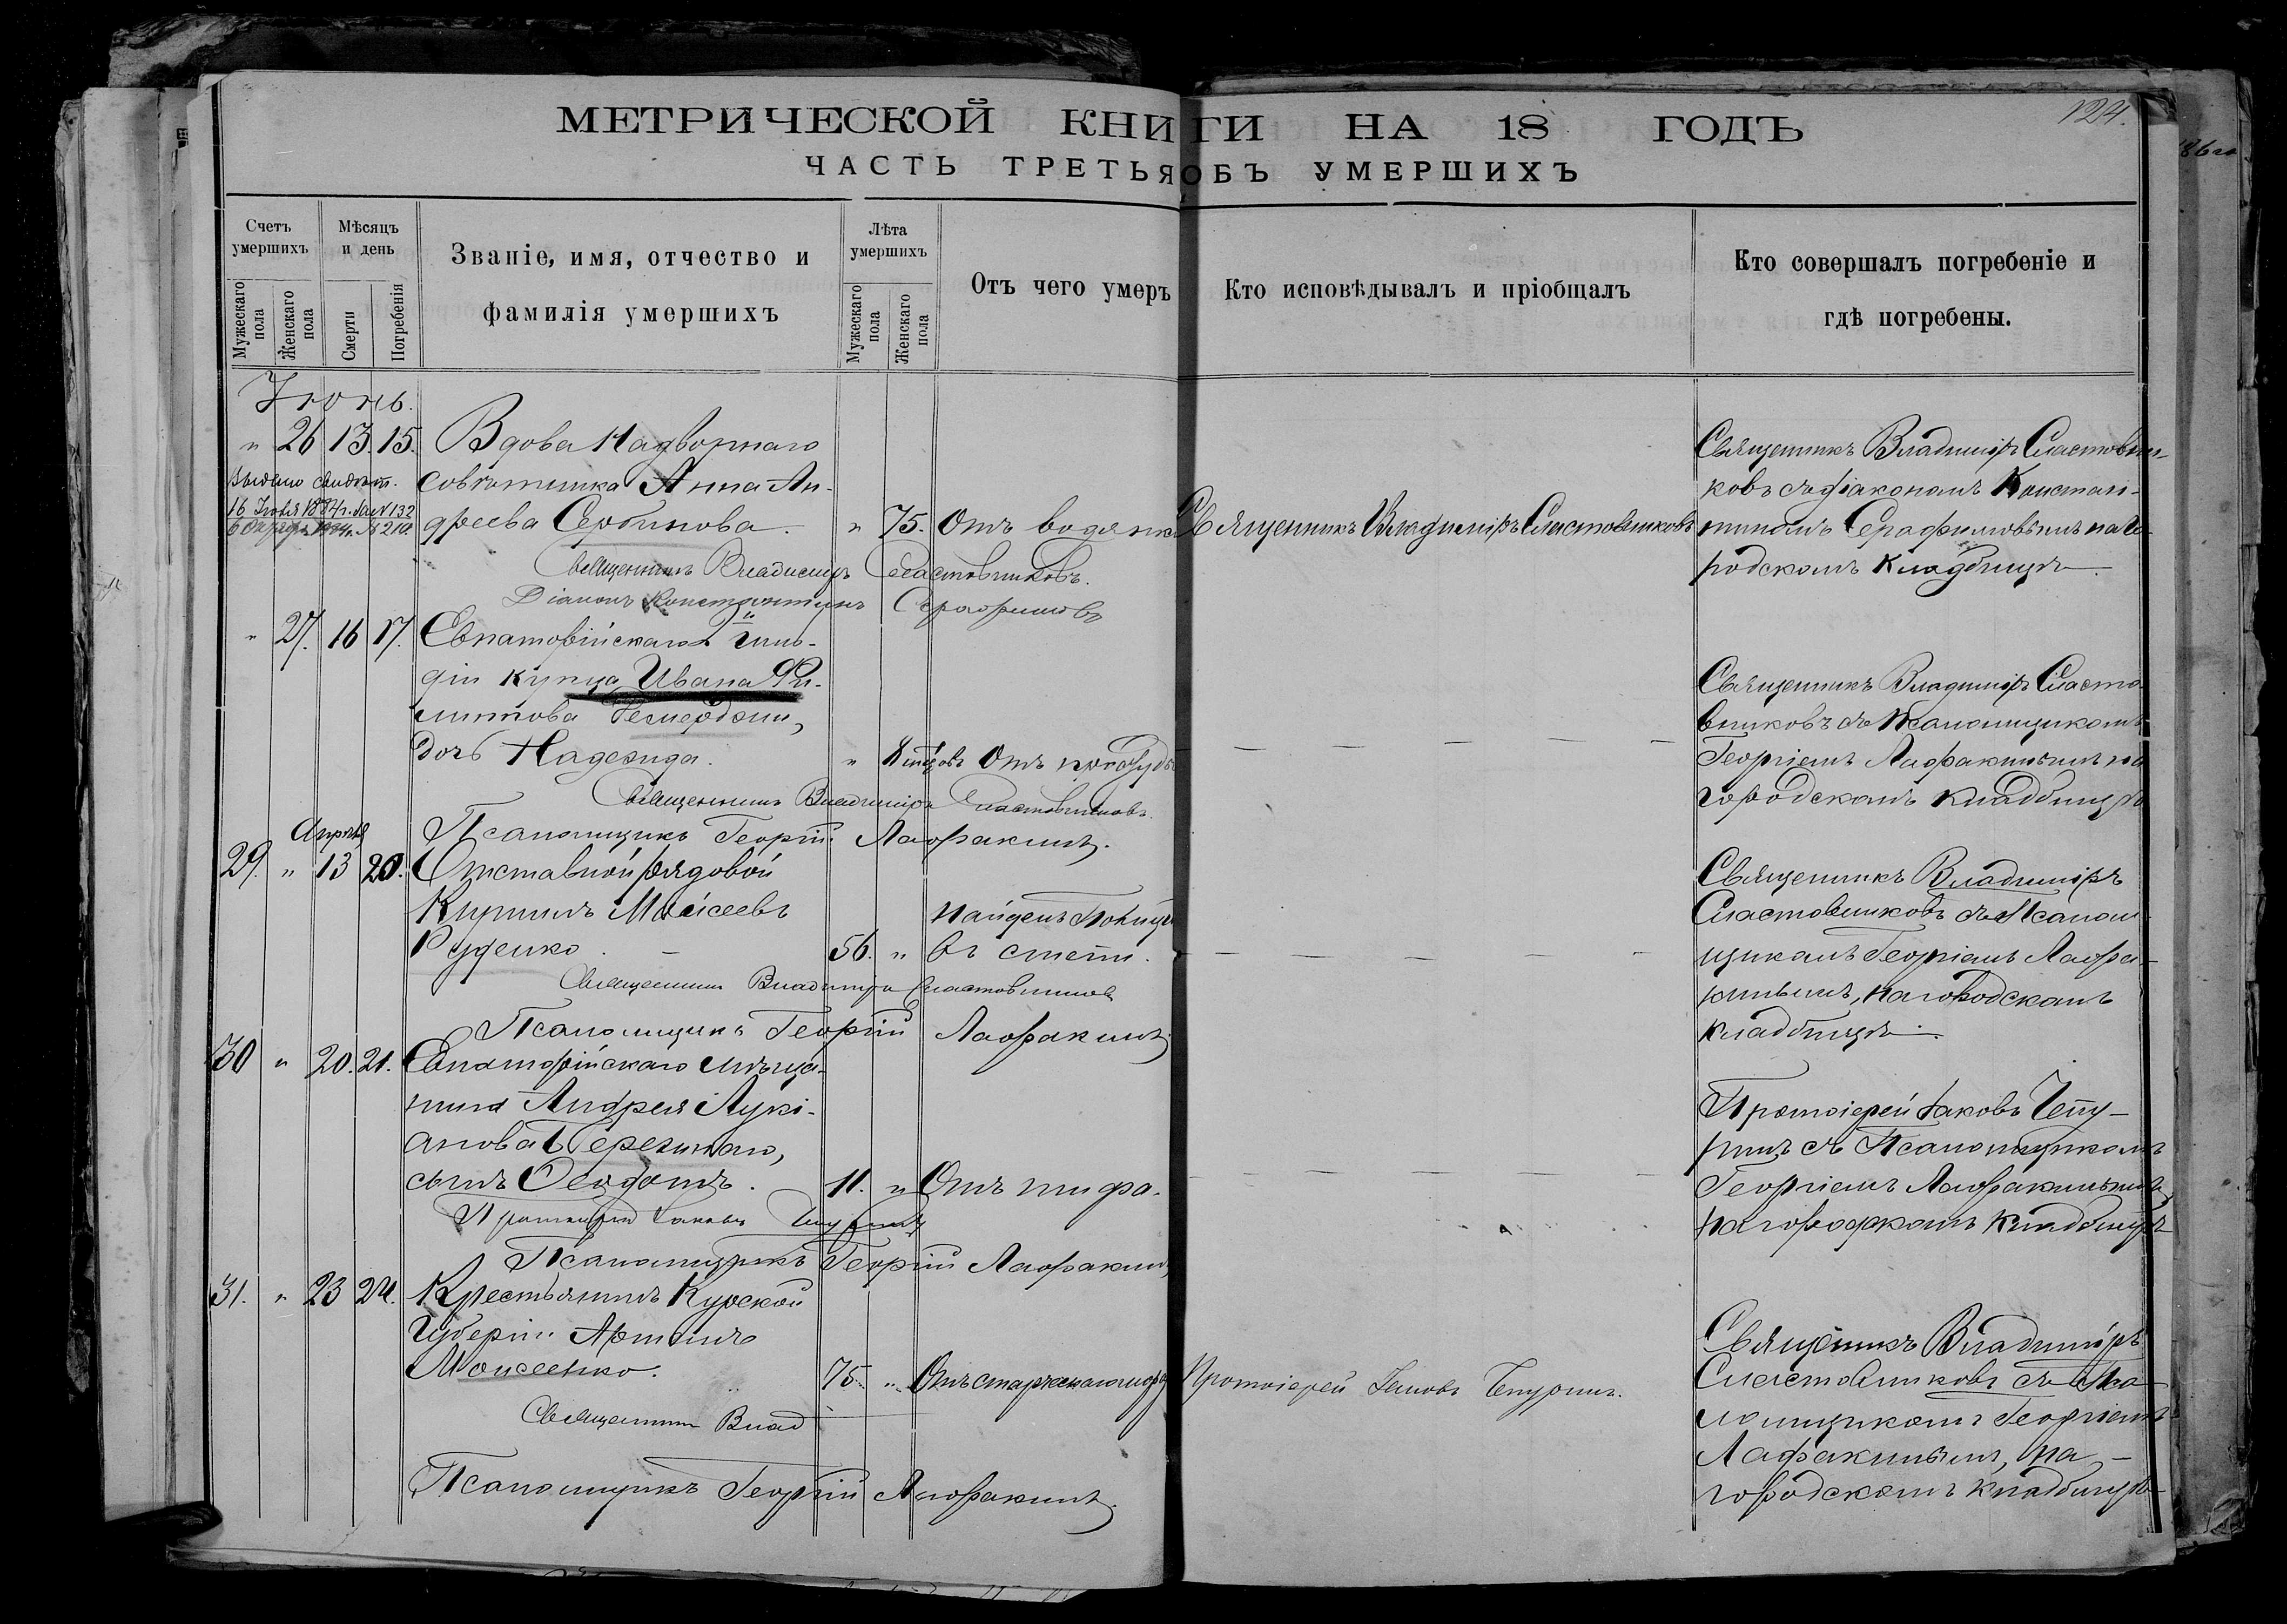 МЕТРИЧЕСКОЙ КНИГИ НА 18 ГОДЪ
124.
ЧАСТЬ ТРЕТЬЯ ОБЪ УМЕРШИХЪ
Счетъ умершихъ
Мужескаго пола
Женскаго пола
Мѣсяцъ и день
Смерти
Погребенія
Званіе, имя, отчество и
фамилія умершихъ
Лѣта умершихъ
Мужескаго пола
Женскаго пола
Отъ чего умеръ
Кто исповѣдывалъ и пріобщалъ
Кто совершалъ погребеніе и
гдѣ погребены.
Іюнь.
" 26 13. 15. Вдова Надворнаго
Выдано свидѣт. совѣтника Анна Ан-
16 Іюля 1884 г. за № 132
№ 210. дреева Сербинова. " 75. Отъ водянки Священникъ Владиміръ Сластовниковъ
Священникъ Владиміръ Сластовни-
ковъ съ діакономъ Констан-
тиномъ Серафимовымъ на го-
родскомъ кладбищѣ.
Священникъ Владиміръ Сластовниковъ.
Діаконъ Константинъ Серафимовъ
" 27. 16 17. Евпаторійскаго II й гиль-
діи купца Ивана Фи-
липпова
дочь Надежда. " 8 мѣсяцовъ Отъ простуды
Священникъ Владиміръ Сласто-
вниковъ съ Псаломщикомъ
Георгіемъ Лафакинымъ на
городскомъ кладбищѣ
Священникъ Владиміръ Сластовниковъ.
Псаломщикъ Георгій Лафакинъ.
Апрѣля
29. " 13 20. Отставной рядовой
Кириллъ Моисеевъ
Руденко. 56. " Найденъ
въ степи.
Священникъ Владиміръ
Сластовниковъ съ Псалом-
щикомъ Георгіемъ Лафа-
кинымъ, на городскомъ
кладбищѣ.
Священникъ Владиміръ Сластовниковъ
Псаломщикъ Георгій Лафакинъ
30 " 20. 21. Евпаторійскаго мѣща-
нина Андрея Лукі-
анова
сынъ Ѳеодотъ. 11. " Отъ тифа.
Протоіерей Іаковъ Чепу-
ринъ съ Псаломщикомъ
Георгіемъ Лафакинымъ
на городскомъ кладбищѣ
Протоіерей Іаковъ Чепуринъ
Псаломщикъ Георгій Лафакинъ
31. " 23 24. Крестьянинъ Курской
Губерніи
Моисеенко. 75. " Протоіерей Іаковъ Чепуринъ.
Священникъ Владиміръ
Сластовниковъ съ Пса-
ломщикомъ Георгіемъ
Лафакинымъ, на
городскомъ кладбищѣ
Священникъ Влад
Псаломщикъ Георгій Лафакинъ.